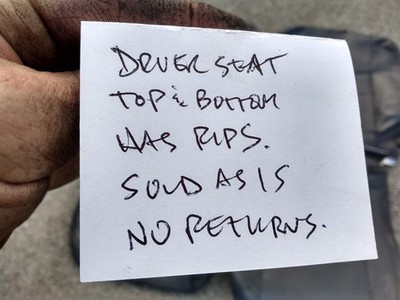 DRIVER SEAT
TOP & BOTTOM
HAS RIPS.
SOLD AS IS
NO RETURNS.